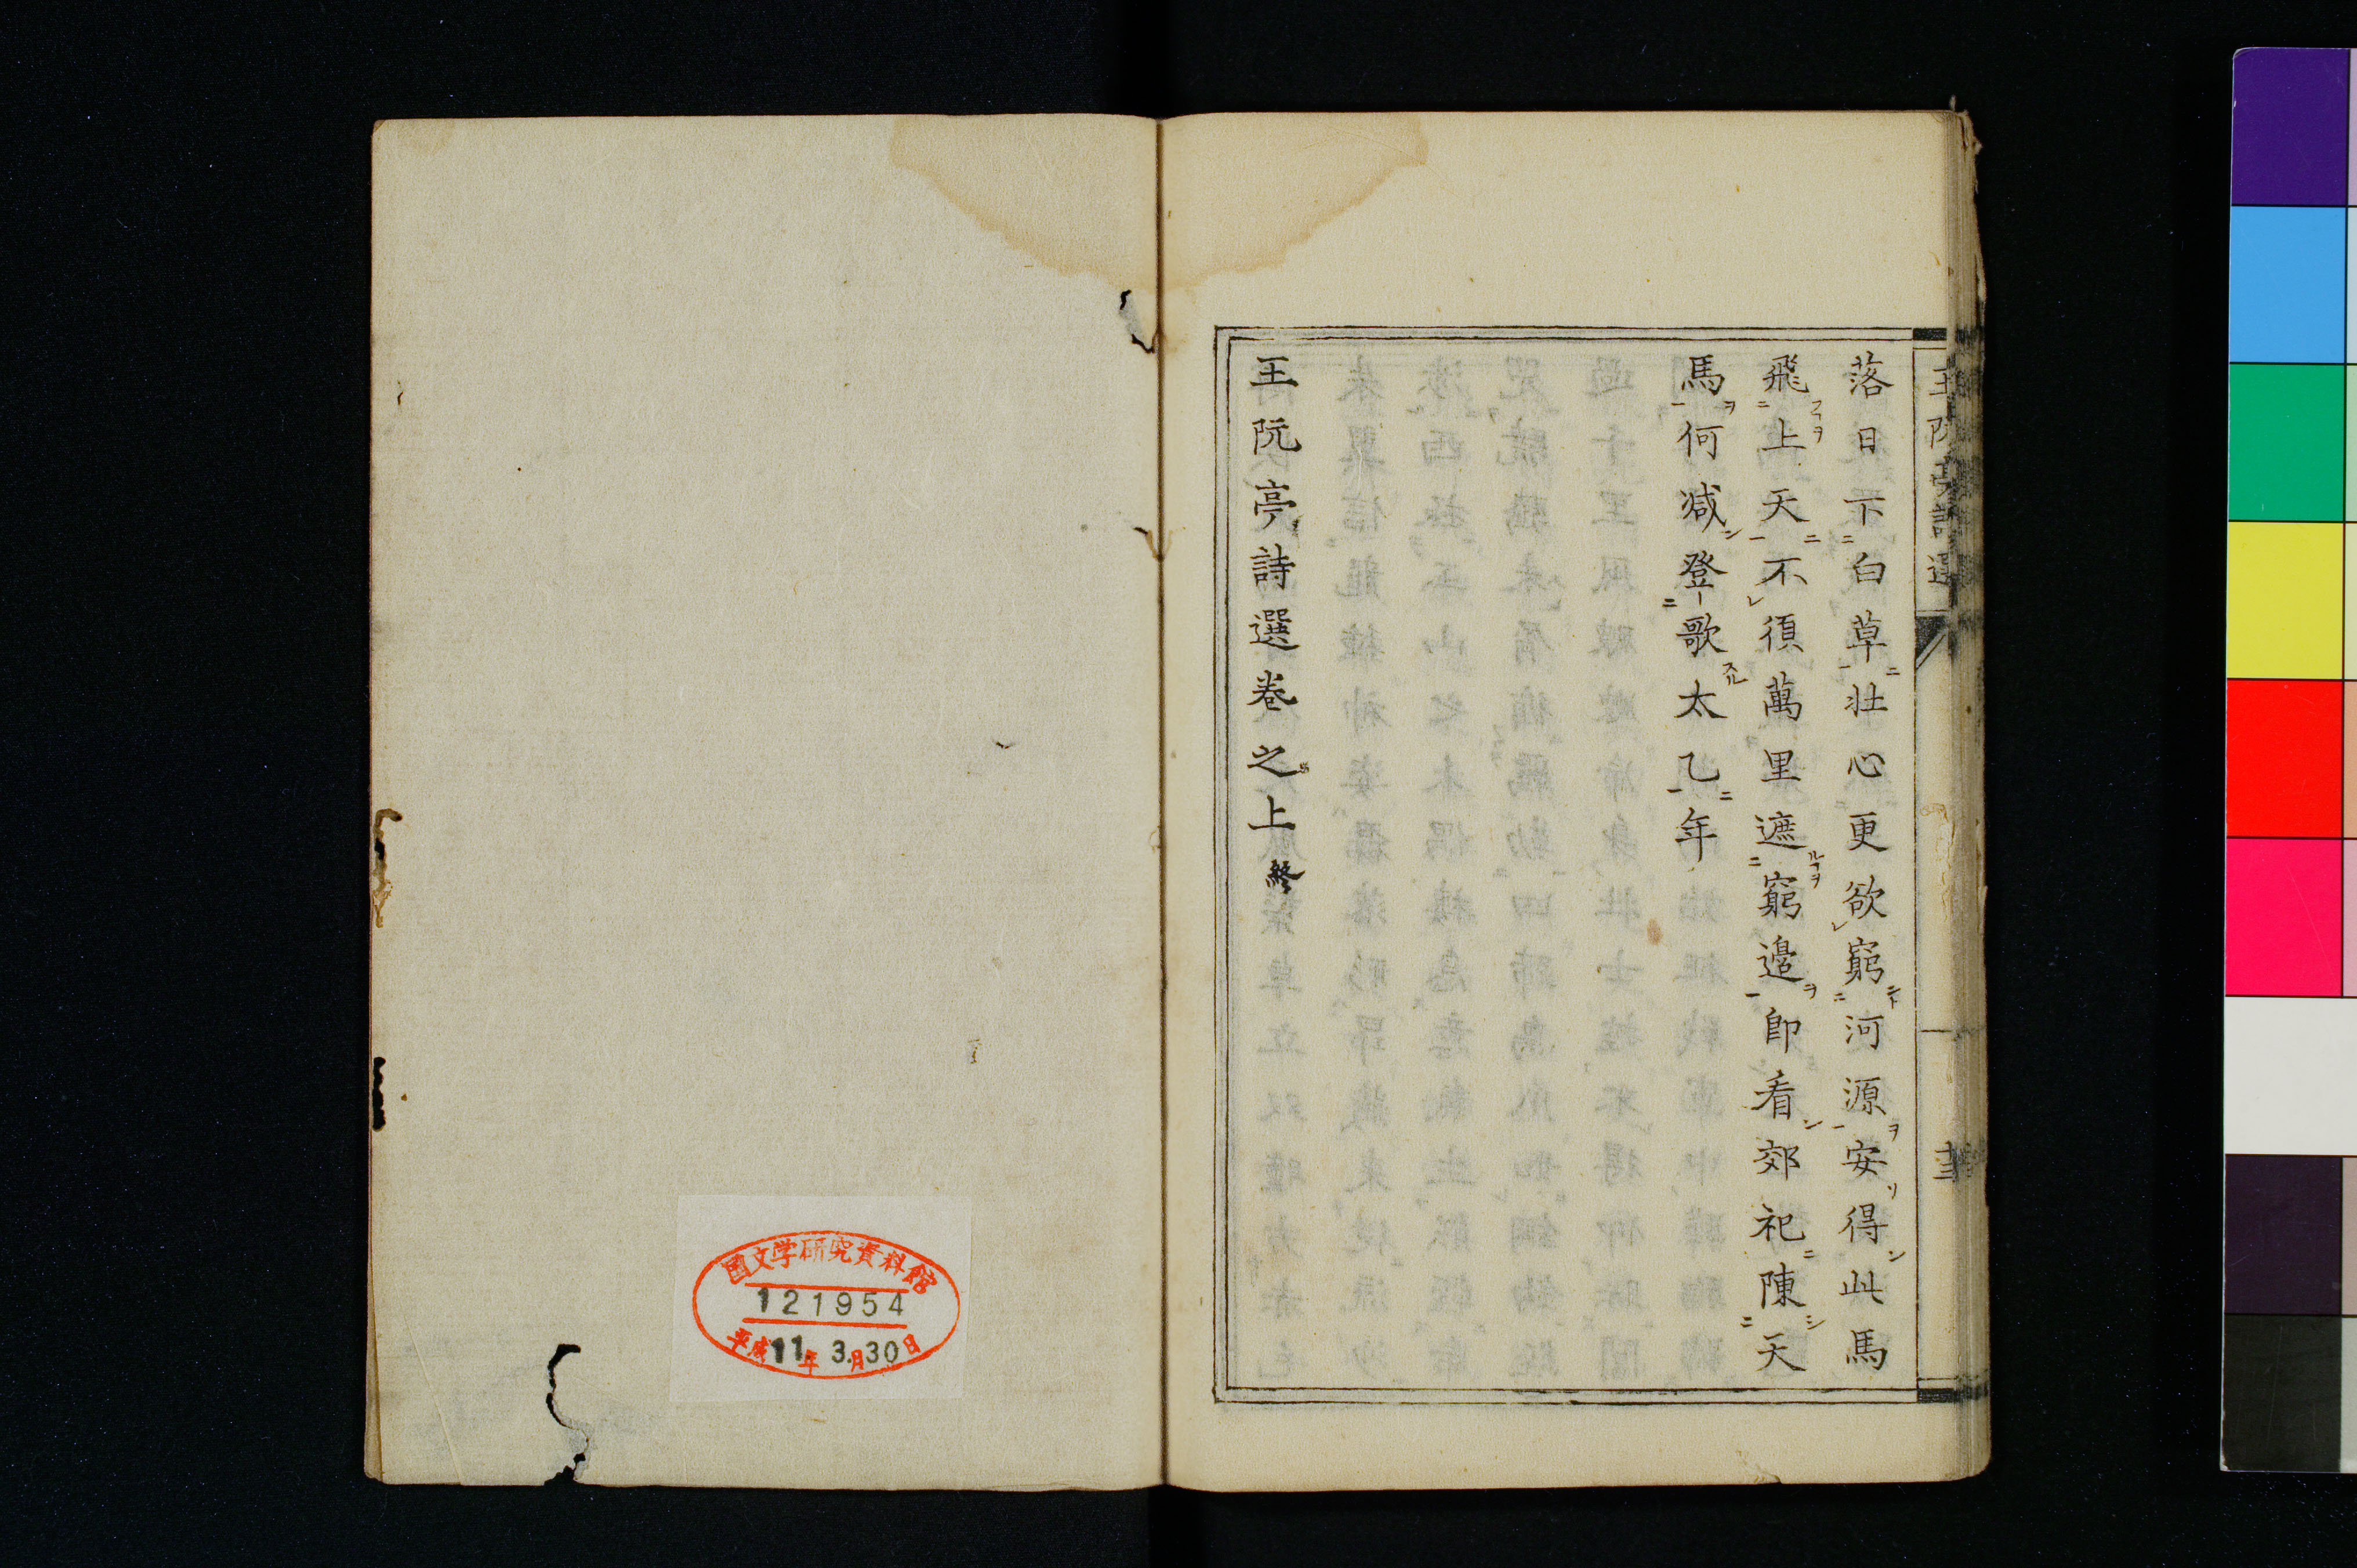 落日下白草壮心更欲窮河源安得此馬
飛上天不須萬里遮窮邊卽看郊祀陳天
馬何减登歌太乙年
王阮亭詩選卷之上終
王阮亭詩選
國文学研究資料館
121954
平成11年3.月30日